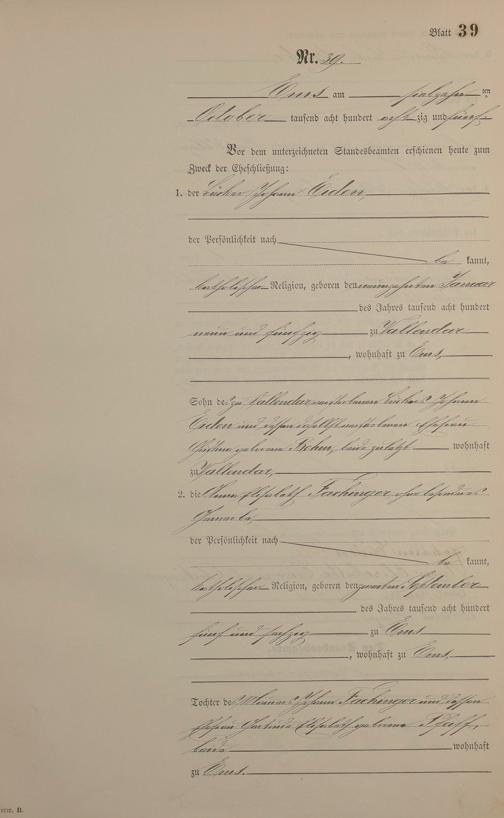 Blatt 39
Nr. 39.
Ems am ten
October tausend acht hundert achtzig und fünf
Vor dem unterzeichneten Standesbeamten erschienen heute zum
Zweck der Eheschließung:
1. der Johann Eiden,
der Persönlichkeit nach
be kannt,
katholischer Religion, geboren den neunzehnten Januar
des Jahres tausend acht hundert
neun und fünfzig zu Vallendar
, wohnhaft zu Ems,
Sohn des zu Vallendar verstorbenen Johann
Eiden und dessen daselbst verstorbenen Ehefrau
geborene beide zuletzt wohnhaft
zu Vallendar,
2. die Anna Elisabeth Fachinger ohne besonderes
Gewerbe
der Persönlichkeit nach
be kannt,
katholischer Religion, geboren den September
des Jahres tausend acht hundert
fünf und sechzig zu Ems
, wohnhaft zu Ems,
Tochter des Johann Fachinger und dessen
Ehefrau Elisabeth geborene Pfaff,
beide wohnhaft
zu Ems.